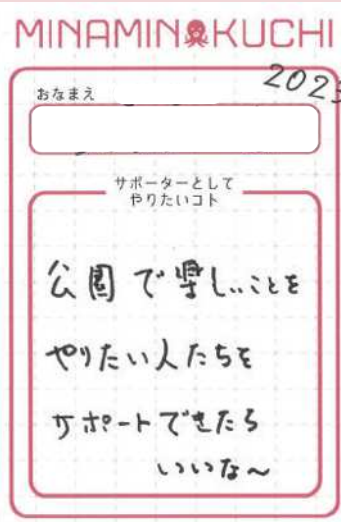 MINAMINOKUCHI
2023
おなまえ
サポーターとして
やりたいコト
公園で楽しいことを
やりたい人たちを
サポートできたら
いいな〜